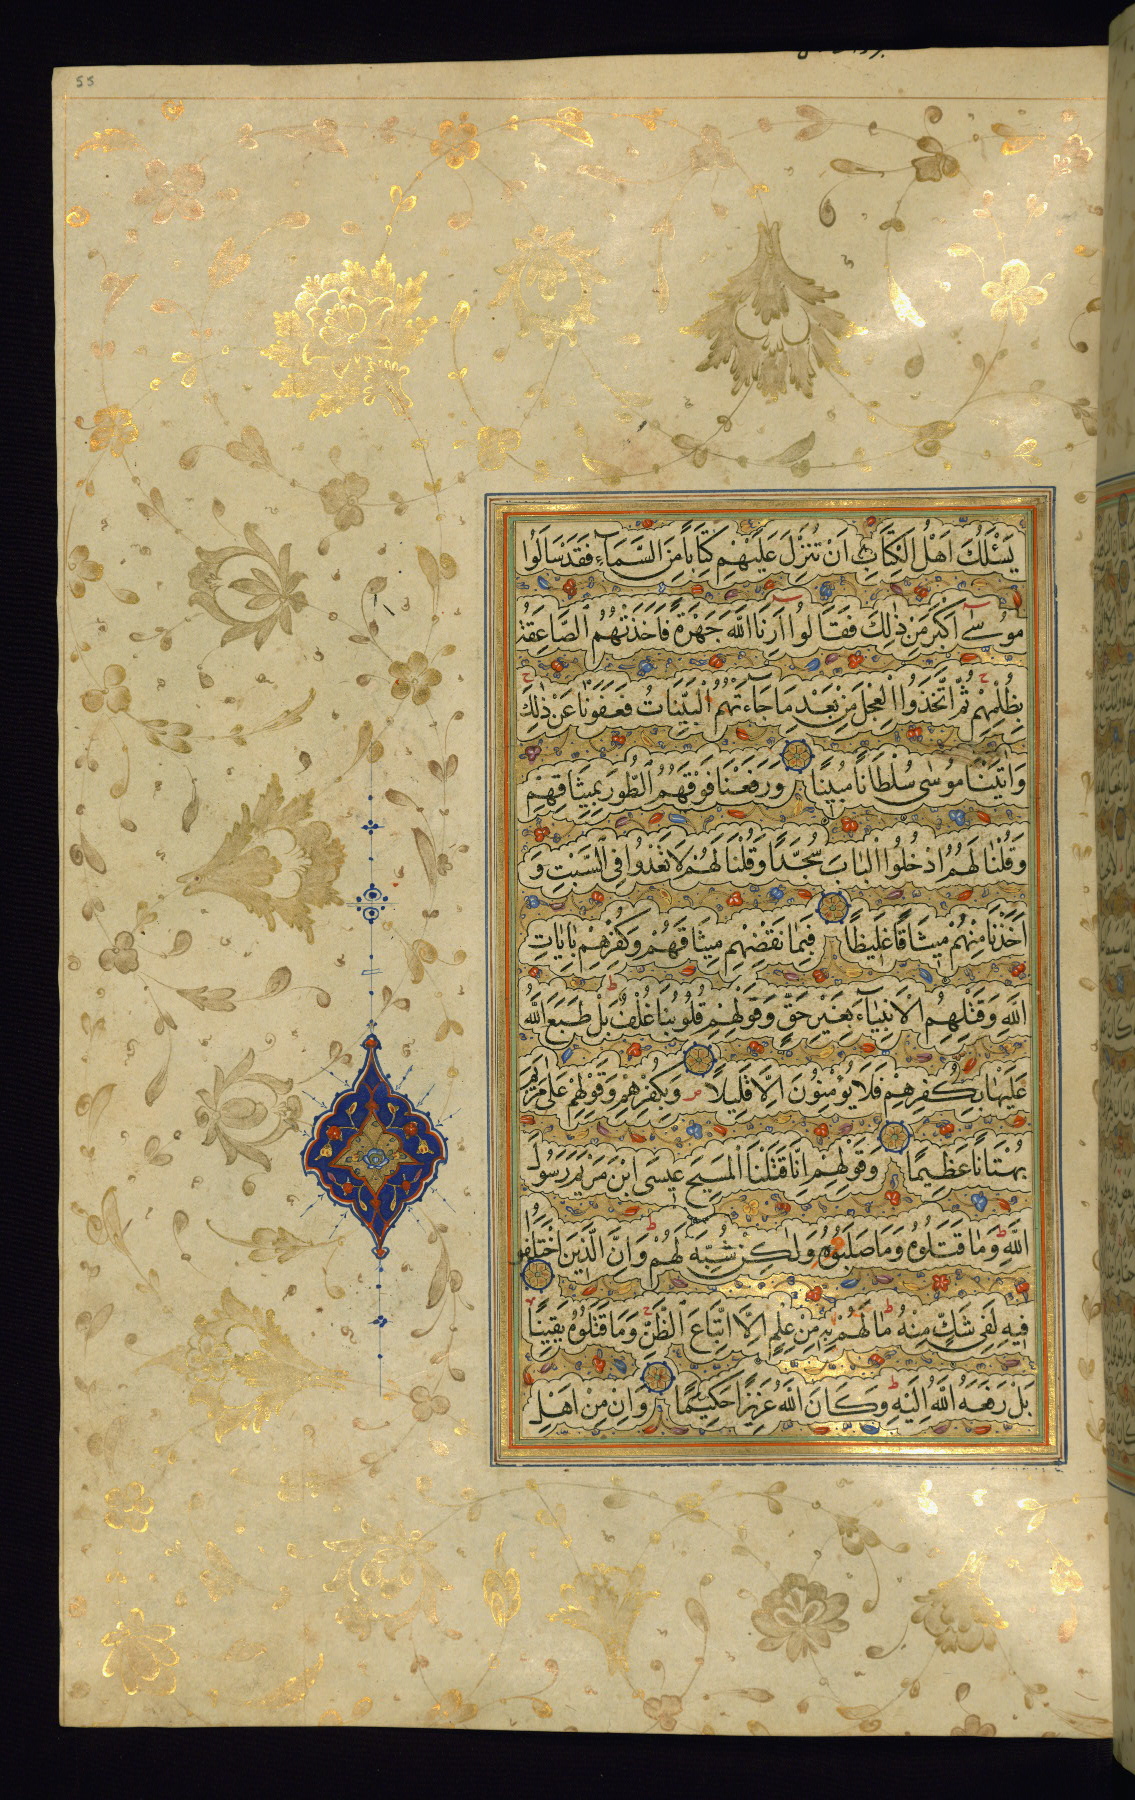 55
يَسْئَلُكَ اَهْلُ الْكِتَابِ اَنْ تُنَزِّلَ عَلَيْهِمْ كِتَابًا مِنَ السَّمَاءِ فَقَدْ سَاَلُوا
مُوسٰى اَكْبَرَ مِنْ ذٰلِكَ فَقَالُوا اَرِنَا اللّٰهَ جَهْرَةً فَاَخَذَتْهُمُ الصَّاعِقَةُ
بِظُلْمِهِمْ ثُمَّ اتَّخَذُوا الْعِجْلَ مِنْ بَعْدِ مَا جَاءَتْهُمُ الْبَيِّنَاتُ فَعَفَوْنَا عَنْ ذٰلِكَ
وَاٰتَيْنَا مُوسٰى سُلْطَانًا مُبِينًا وَرَفَعْنَا فَوْقَهُمُ الطُّورَ بِمِيثَاقِهِمْ
وَقُلْنَا لَهُمُ ادْخُلُوا الْبَابَ سُجَّدًا وَقُلْنَا لَهُمْ لَا تَعْدُوا فِى السَّبْتِ وَ
اَخَذْنَا مِنْهُمْ مِيثَاقًا غَلِيظًا فَبِمَا نَقْضِهِمْ مِيثَاقَهُمْ وَكُفْرِهِمْ بِاٰيَاتِ
اللّٰهِ وَقَتْلِهِمُ الْاَنْبِيَاءَ بِغَيْرِ حَقٍّ وَقَوْلِهِمْ قُلُوبُنَا غُلْفٌ بَلْ طَبَعَ اللّٰهُ
عَلَيْهَا بِكُفْرِهِمْ فَلَا يُؤْمِنُونَ اِلَّا قَلِيلًا وَبِكُفْرِهِمْ وَقَوْلِهِمْ عَلٰى مَرْيَمَ
بُهْتَانًا عَظِيمًا وَقَوْلِهِمْ اِنَّا قَتَلْنَا الْمَسِيحَ عِيسَى ابْنَ مَرْيَمَ رَسُولَ
اللّٰهِ وَمَا قَتَلُوهُ وَمَا صَلَبُوهُ وَلٰكِنْ شُبِّهَ لَهُمْ وَاِنَّ الَّذِينَ اخْتَلَفُوا
فِيهِ لَفِى شَكٍّ مِنْهُ مَا لَهُمْ بِهِ مِنْ عِلْمٍ اِلَّا اتِّبَاعَ الظَّنِّ وَمَا قَتَلُوهُ يَقِينًا
بَلْ رَفَعَهُ اللّٰهُ اِلَيْهِ وَكَانَ اللّٰهُ عَزِيزًا حَكِيمًا وَاِنْ مِنْ اَهْلِ